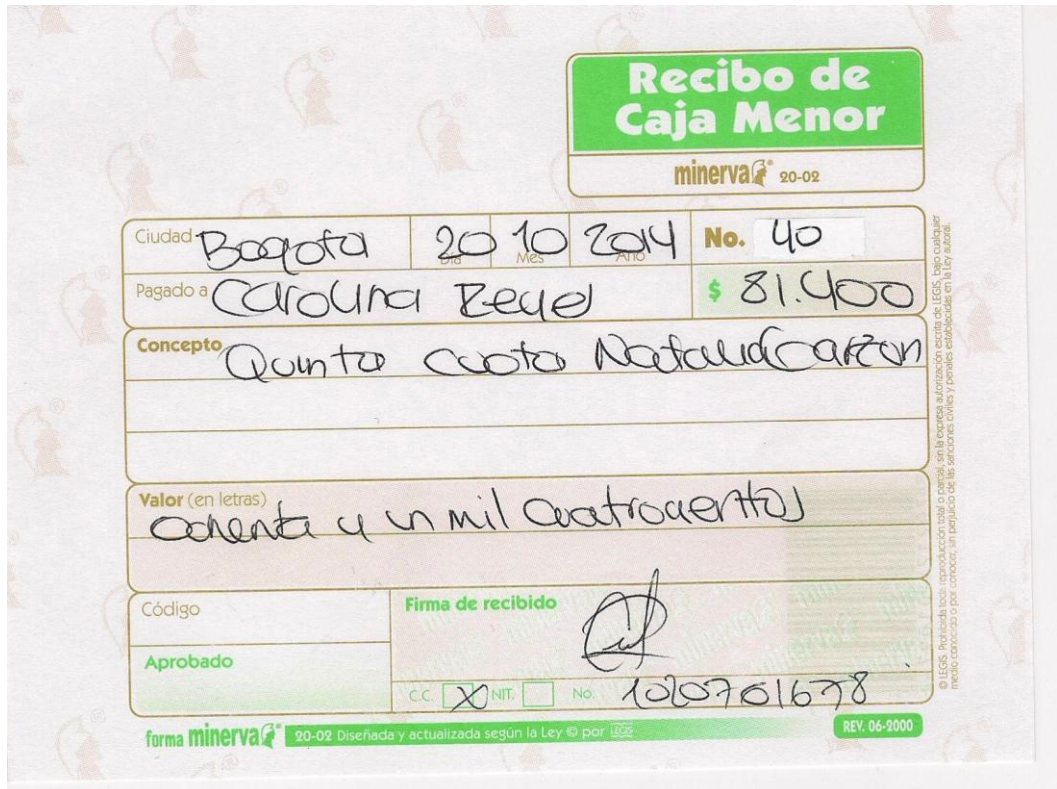 Recibo de
Caja Menor
minerva® 20-02
Ciudad Bogota 20 10 2014 No. 40
Día Mes Año
Pagado a Carolina Reyes $ 81.400
Concepto Quinta cuota Natalia Garzon
Valor (en letras)
Ochenta y un mil cuatrocientos
Código
Firma de recibido
Aprobado
C.C. X NIT. No. 1020701678
forma minerva® 20-02 Diseñada y actualizada según la Ley © por LEGIS
REV. 06-2000
© LEGIS. Prohibida toda reproducción total o parcial, sin la expresa autorización escrita de LEGIS, bajo cualquier
medio conocido o por conocer, sin perjuicio de las sanciones civiles y penales establecidas en la Ley autoral.